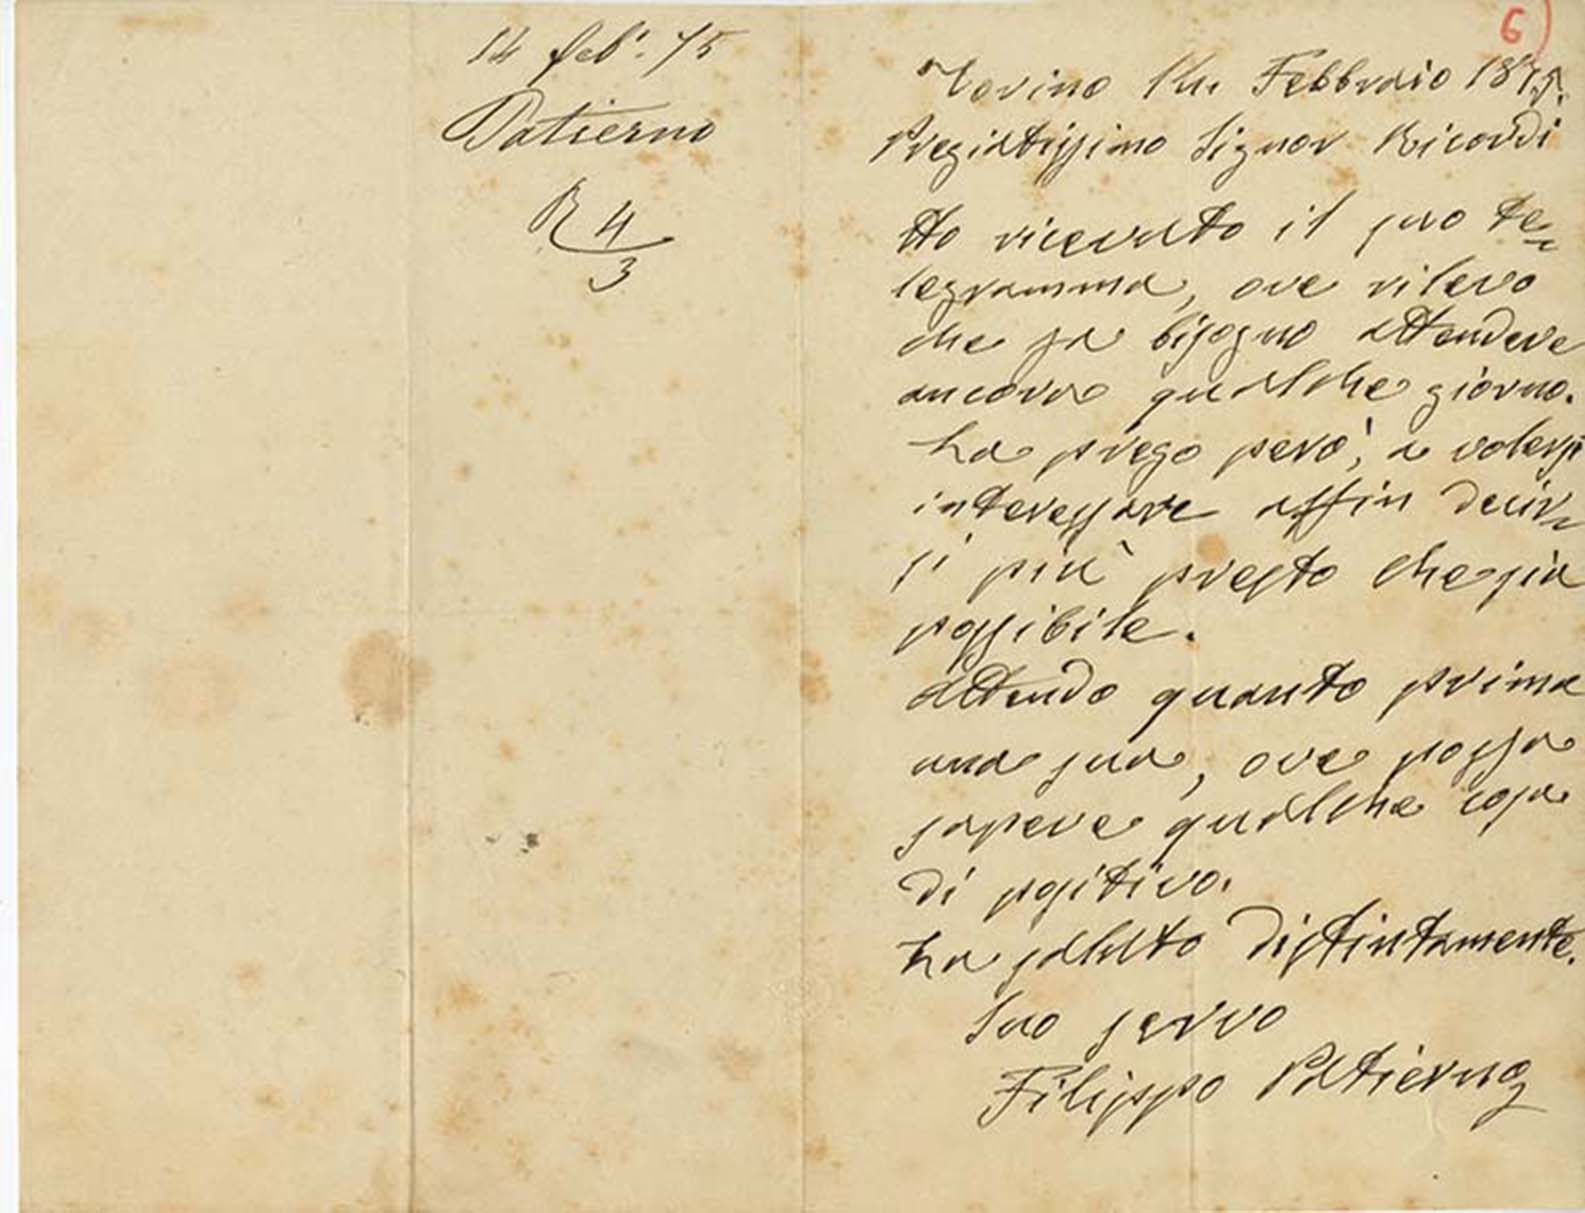 14 feb. 75
Patierno
R 4
3
6)
Torino 14. Febbraio 1875.
Pregiatissimo Signor Ricordi
Ho ricevuto il suo te=
legramma, ove rilevo
che fa bisogno attendere
ancora qualche giorno.
La prego però, a volersi
interessare affin
si più presto che sia
possibile.
Attendo quanto prima
una sua, ove possa
sapere qualche cosa
di positivo.
La saluto distintamente.
Suo servo
Filippo Patierno